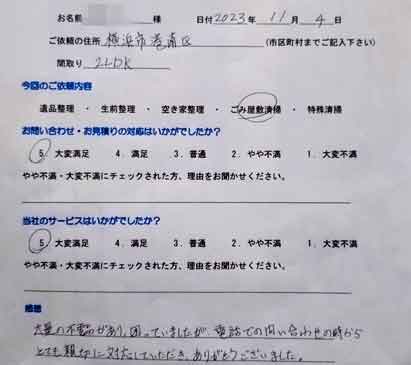 お名前 様 日付 2023年 11月 4日
ご依頼の住所 横浜市港南区 (市区町村までご記入下さい)
間取り 2LDK
今回のご依頼内容
遺品整理 ・ 生前整理 ・ 空き家整理 ・ ごみ屋敷清掃 ・ 特殊清掃
お問い合わせ・お見積りの対応はいかがでしたか？
5. 大変満足 4. 満足 3. 普通 2. やや不満 1. 大変不満
やや不満・大変不満にチェックされた方、理由をお聞かせください。
当社のサービスはいかがでしたか？
5. 大変満足 4. 満足 3. 普通 2. やや不満 1. 大変不満
やや不満・大変不満にチェックされた方、理由をお聞かせください。
感想
大量の不用品があり、困っていましたが、電話での問い合わせの時から
とても親切に対応していただき、ありがとうございました。